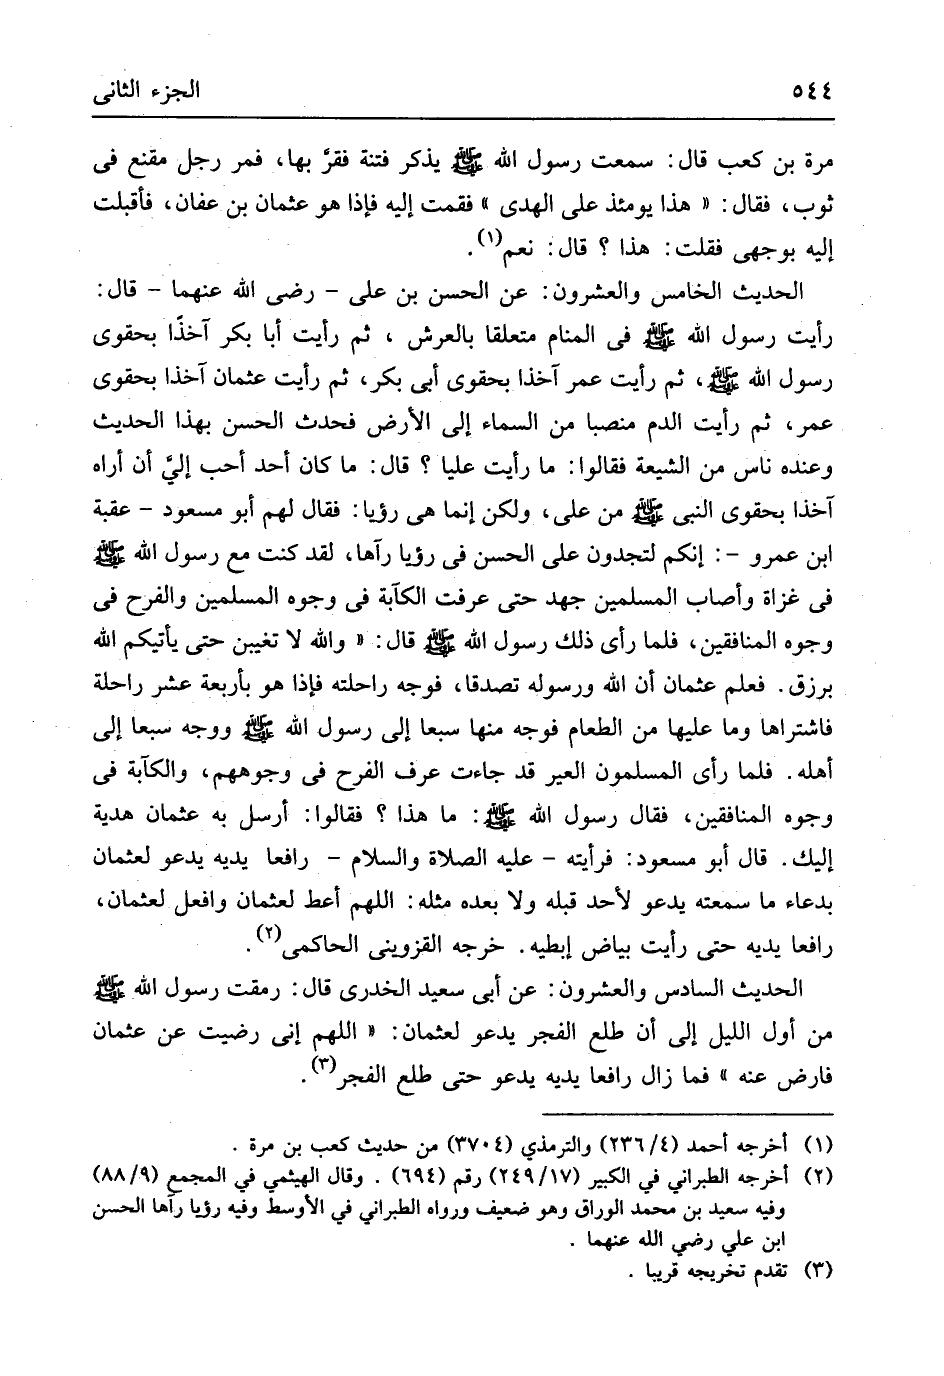 ٥٤٤ الجزء الثانى
مرة بن كعب قال: سمعت رسول الله ﷺ يذكر فتنة فقرَّ بها، فمر رجل مقنع فى
ثوب، فقال: « هذا يومئذ على الهدى » فقمت إليه فإذا هو عثمان بن عفان، فأقبلت
إليه بوجهى فقلت: هذا ؟ قال: نعم(١).
الحديث الخامس والعشرون: عن الحسن بن على - رضى الله عنهما - قال:
رأيت رسول الله ﷺ فى المنام متعلقا بالعرش ، ثم رأيت أبا بكر آخذًا بحقوى
رسول الله ﷺ، ثم رأيت عمر آخذا بحقوى أبى بكر، ثم رأيت عثمان آخذا بحقوى
عمر، ثم رأيت الدم منصبا من السماء إلى الأرض فحدث الحسن بهذا الحديث
وعنده ناس من الشيعة فقالوا: ما رأيت عليا ؟ قال: ما كان أحد أحب إليَّ أن أراه
آخذا بحقوى النبى ﷺ من على، ولكن إنما هى رؤيا: فقال لهم أبو مسعود - عقبة
ابن عمرو -: إنكم لتجدون على الحسن فى رؤيا رآها، لقد كنت مع رسول الله ﷺ
فى غزاة وأصاب المسلمين جهد حتى عرفت الكآبة فى وجوه المسلمين والفرح فى
وجوه المنافقين، فلما رأى ذلك رسول الله ﷺ قال: « والله لا تغيبن حتى يأتيكم الله
برزق. فعلم عثمان أن الله ورسوله تصدقا، فوجه راحلته فإذا هو بأربعة عشر راحلة
فاشتراها وما عليها من الطعام فوجه منها سبعا إلى رسول الله ﷺ ووجه سبعا إلى
أهله. فلما رأى المسلمون العير قد جاءت عرف الفرح فى وجوههم، والكآبة فى
وجوه المنافقين، فقال رسول الله ﷺ: ما هذا ؟ فقالوا: أرسل به عثمان هدية
إليك. قال أبو مسعود: فرأيته - عليه الصلاة والسلام - رافعا يديه يدعو لعثمان
بدعاء ما سمعته يدعو لأحد قبله ولا بعده مثله: اللهم أعط لعثمان وافعل لعثمان،
رافعا يديه حتى رأيت بياض إبطيه. خرجه القزوينى الحاكمى(٢).
الحديث السادس والعشرون: عن أبى سعيد الخدرى قال: رمقت رسول الله ﷺ
من أول الليل إلى أن طلع الفجر يدعو لعثمان: « اللهم إنى رضيت عن عثمان
فارض عنه » فما زال رافعا يديه يدعو حتى طلع الفجر(٣).
(١) أخرجه أحمد (٢٣٦/٤) والترمذي (٣٧٠٤) من حديث كعب بن مرة .
(٢) أخرجه الطبراني في الكبير (٢٤٩/١٧) رقم (٦٩٤) . وقال الهيثمي في المجمع (٨٨/٩)
وفيه سعيد بن محمد الوراق وهو ضعيف ورواه الطبراني في الأوسط وفيه رؤيا رآها الحسن
ابن علي رضي الله عنهما .
(٣) تقدم تخريجه قريبا .